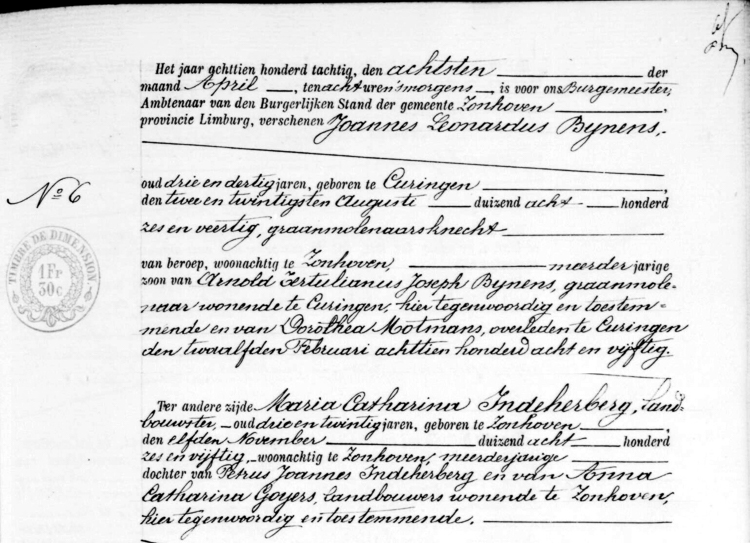 Het jaar achttien honderd tachtig, den achtsten der
maand April, ten acht uren 'smorgens, is voor ons Burgemeester,
Ambtenaar van den Burgerlijken Stand der gemeente Zonhoven,
provincie Limburg, verschenen Joannes Leonardus Bynens,
No 6
oud drie en dertig jaren, geboren te Curingen,
den twee en twintigsten Auguste duizend acht honderd
zes en veertig, graanmolenaarsknecht
van beroep, woonachtig te Zonhoven, meerder jarige
zoon van Arnold Tertulianus Joseph Bynens, graanmole-
naar wonende te Curingen, hier tegenwoordig en toestem-
mende en van Dorothea Motmans, overleden te Curingen
den twaalfden Februari achttien honderd acht en vijftig.
TIMBRE DE DIMENSION
1 Fr
30c
Ter andere zijde Maria Catharina Indeherberg, Land-
bouwster, oud drie en twintig jaren, geboren te Zonhoven,
den elfden November duizend acht honderd
zes en vijftig, woonachtig te Zonhoven, meerderjarige
dochter van Petrus Joannes Indeherberg en van Anna
Catharina Goyers, Landbouwers wonende te Zonhoven,
hier tegenwoordig en toestemmende.